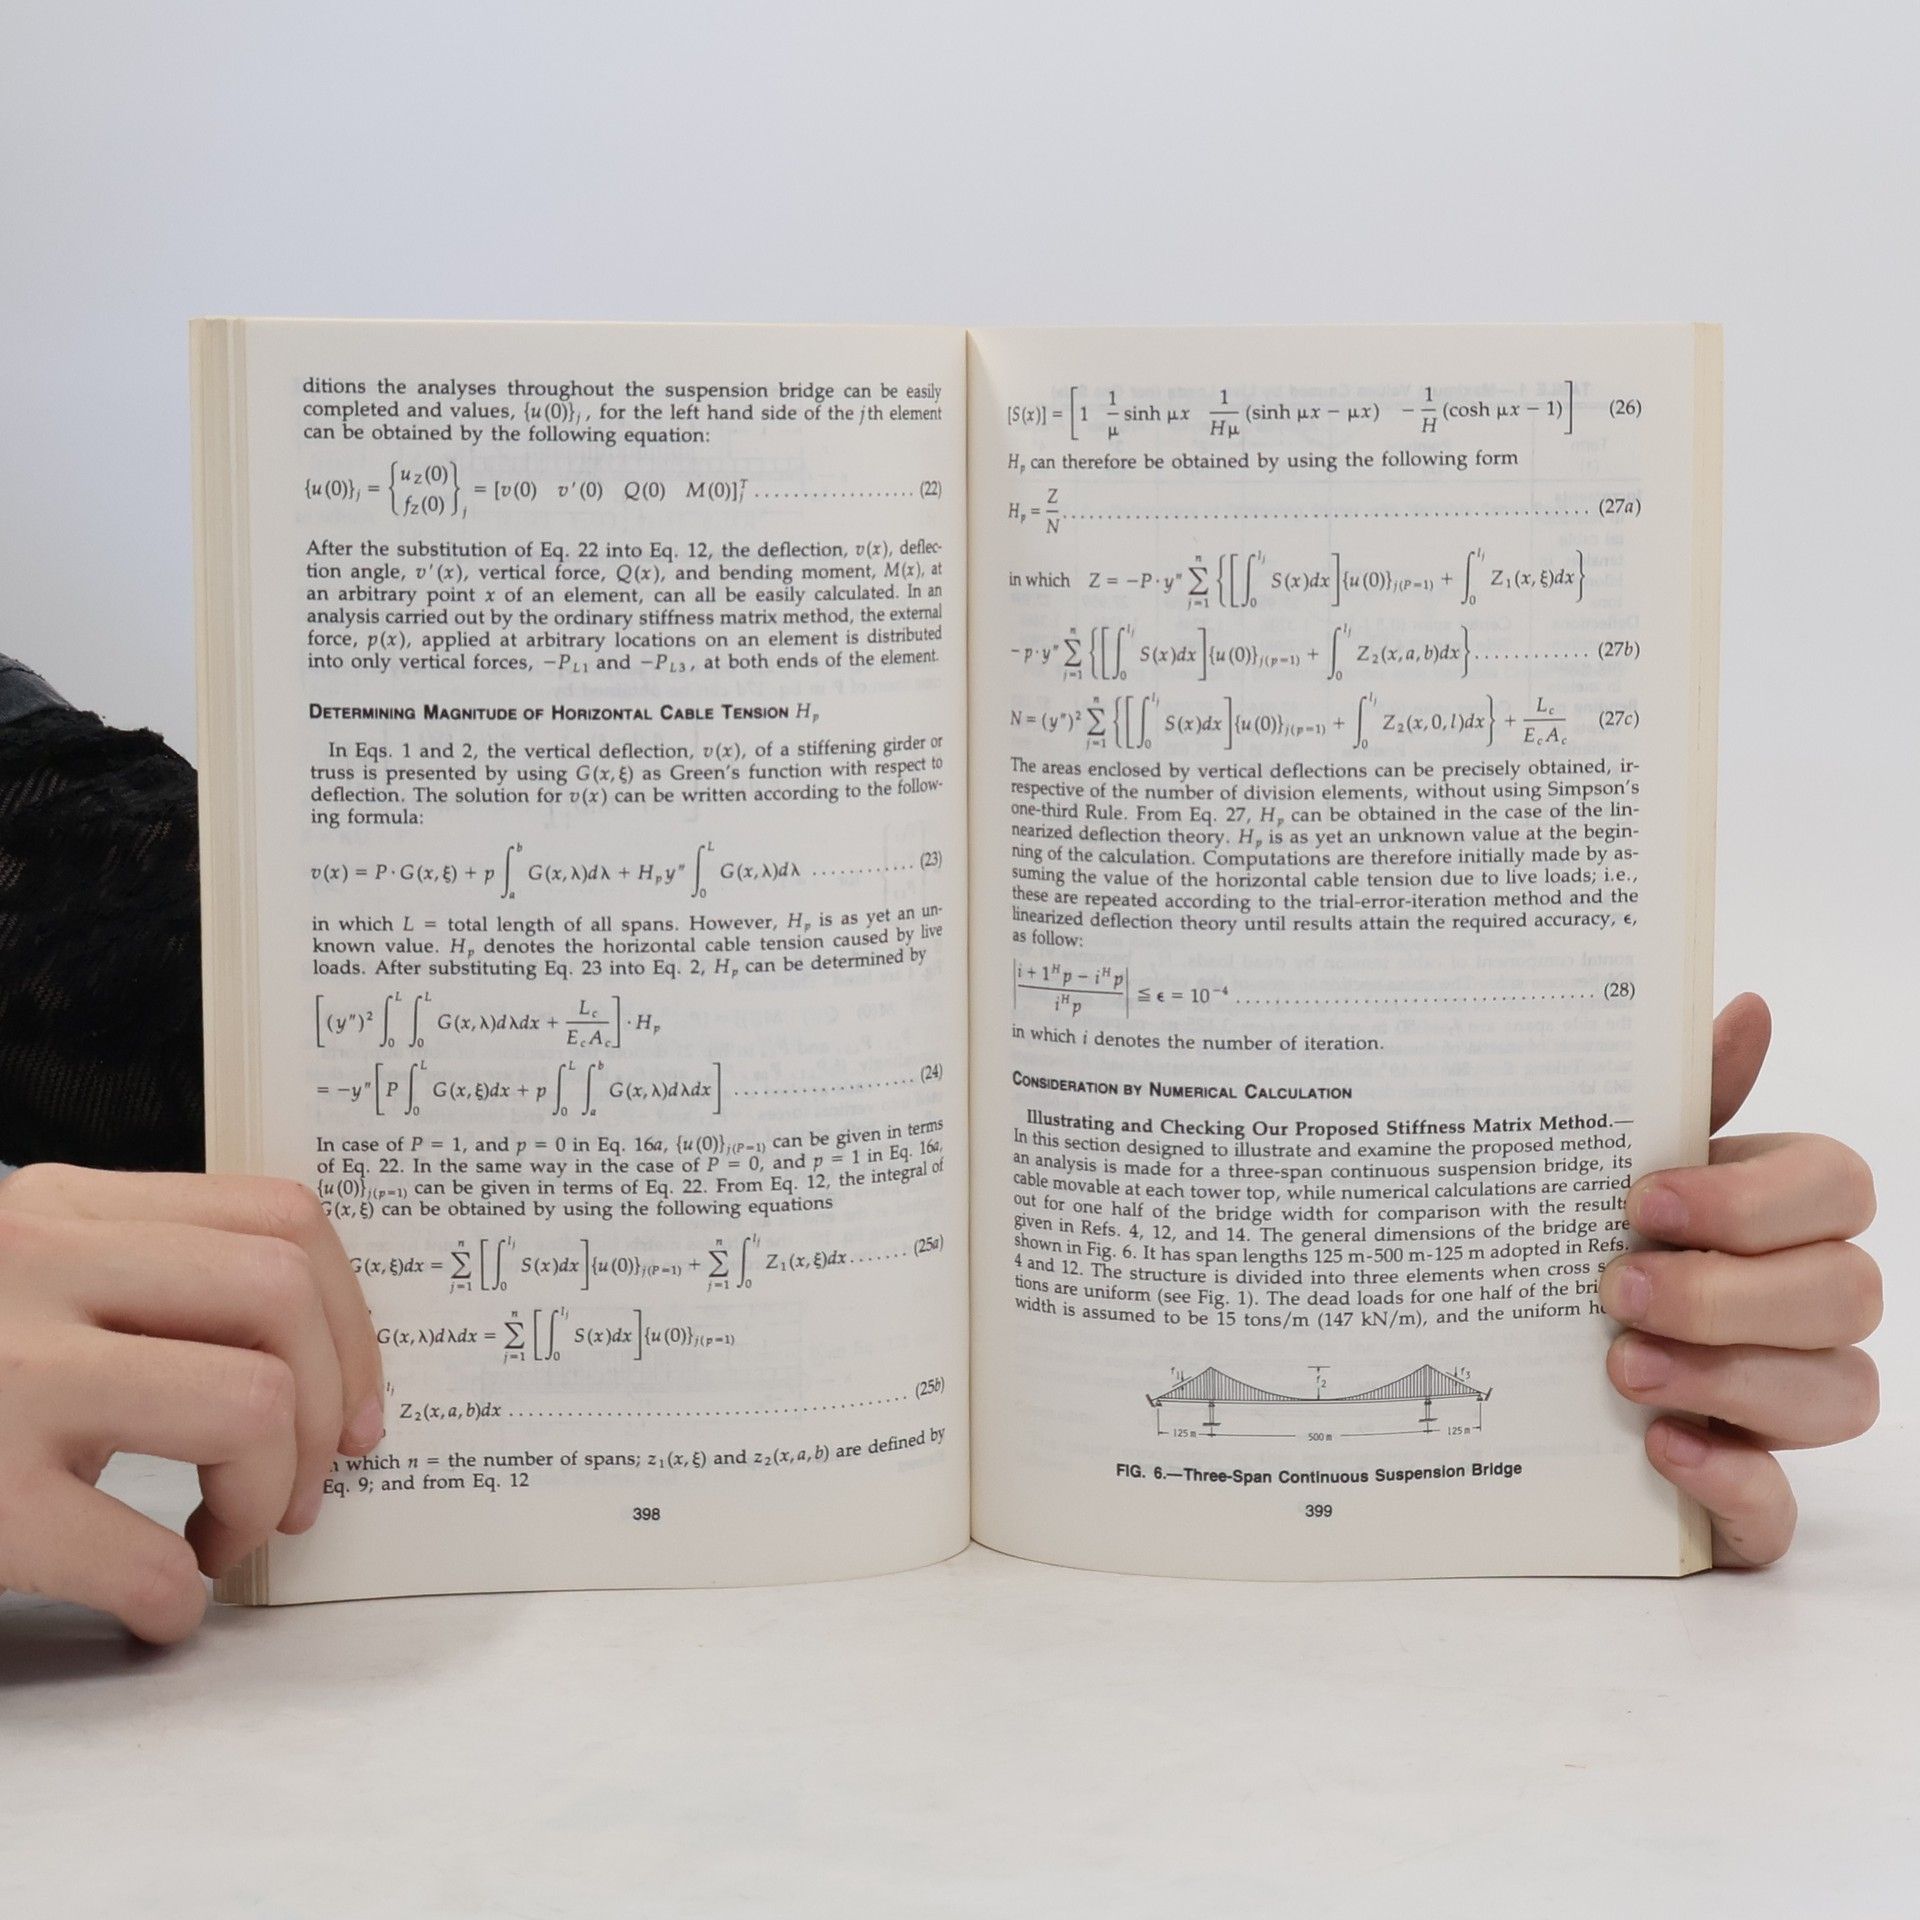 ditions the analyses throughout the suspension bridge can be easily
completed and values, {u(0)}j, for the left hand side of the jth element
can be obtained by the following equation:
{u(0)}j = {uZ(0) fZ(0)}j = [v(0) v'(0) Q(0) M(0)]jT .................. (22)
After the substitution of Eq. 22 into Eq. 12, the deflection, v(x), deflec-
tion angle, v'(x), vertical force, Q(x), and bending moment, M(x), at
an arbitrary point x of an element, can all be easily calculated. In an
analysis carried out by the ordinary stiffness matrix method, the external
force, p(x), applied at arbitrary locations on an element is distributed
into only vertical forces, −PL1 and −PL3, at both ends of the element.
DETERMINING MAGNITUDE OF HORIZONTAL CABLE TENSION Hp
In Eqs. 1 and 2, the vertical deflection, v(x), of a stiffening girder or
truss is presented by using G(x,ξ) as Green's function with respect to
deflection. The solution for v(x) can be written according to the follow-
ing formula:
v(x) = P·G(x,ξ) + p ∫ab G(x,λ)dλ + Hpy" ∫0L G(x,λ)dλ ............ (23)
in which L = total length of all spans. However, Hp is as yet an un-
known value. Hp denotes the horizontal cable tension caused by live
loads. After substituting Eq. 23 into Eq. 2, Hp can be determined by
[(y")² ∫0L ∫0L G(x,λ)dλdx + Lc/EcAc] · Hp
= −y" [P ∫0L G(x,ξ)dx + p ∫0L ∫ab G(x,λ)dλdx] .................. (24)
In case of P = 1, and p = 0 in Eq. 16a, {u(0)}j(P=1) can be given in terms
of Eq. 22. In the same way in the case of P = 0, and p = 1 in Eq. 16a,
{u(0)}j(p=1) can be given in terms of Eq. 22. From Eq. 12, the integral of
G(x,ξ) can be obtained by using the following equations
G(x,ξ)dx = Σj=1n [∫0lj S(x)dx] {u(0)}j(P=1) + Σj=1n ∫0lj Z1(x,ξ)dx....... (25a)
G(x,λ)dλdx = Σj=1n [∫0lj S(x)dx] {u(0)}j(p=1)
lj Z2(x,a,b)dx ........................................ (25b)
which n = the number of spans; z1(x,ξ) and z2(x,a,b) are defined by
Eq. 9; and from Eq. 12
398
[S(x)] = [1 1/μ sinh μx 1/Hμ (sinh μx − μx) −1/H (cosh μx − 1)] (26)
Hp can therefore be obtained by using the following form
Hp = Z/N ...................................................... (27a)
in which Z = −P·y" Σj=1n {[∫0lj S(x)dx] {u(0)}j(P=1) + ∫0lj Z1(x,ξ)dx}
−p·y" Σj=1n {[∫0lj S(x)dx] {u(0)}j(p=1) + ∫0lj Z2(x,a,b)dx} ............ (27b)
N = (y")² Σj=1n {[∫0lj S(x)dx] {u(0)}j(p=1) + ∫0lj Z2(x,0,l)dx} + Lc/EcAc (27c)
The areas enclosed by vertical deflections can be precisely obtained, ir-
respective of the number of division elements, without using Simpson's
one-third Rule. From Eq. 27, Hp can be obtained in the case of the lin-
nearized deflection theory. Hp is as yet an unknown value at the begin-
ning of the calculation. Computations are therefore initially made by as-
suming the value of the horizontal cable tension due to live loads; i.e.,
these are repeated according to the trial-error-iteration method and the
linearized deflection theory until results attain the required accuracy, ϵ,
as follow:
|i + 1Hp − iHp / iHp| ≦ ϵ = 10−4 ..................................... (28)
in which i denotes the number of iteration.
CONSIDERATION BY NUMERICAL CALCULATION
Illustrating and Checking Our Proposed Stiffness Matrix Method.—
In this section designed to illustrate and examine the proposed method,
an analysis is made for a three-span continuous suspension bridge, its
cable movable at each tower top, while numerical calculations are carried
out for one half of the bridge width for comparison with the results
given in Refs. 4, 12, and 14. The general dimensions of the bridge are
shown in Fig. 6. It has span lengths 125 m-500 m-125 m adopted in Refs.
4 and 12. The structure is divided into three elements when cross
tions are uniform (see Fig. 1). The dead loads for one half of the
width is assumed to be 15 tons/m (147 kN/m), and the uniform
f1 f2 f3
125 m 500 m 125 m
FIG. 6.—Three-Span Continuous Suspension Bridge
399